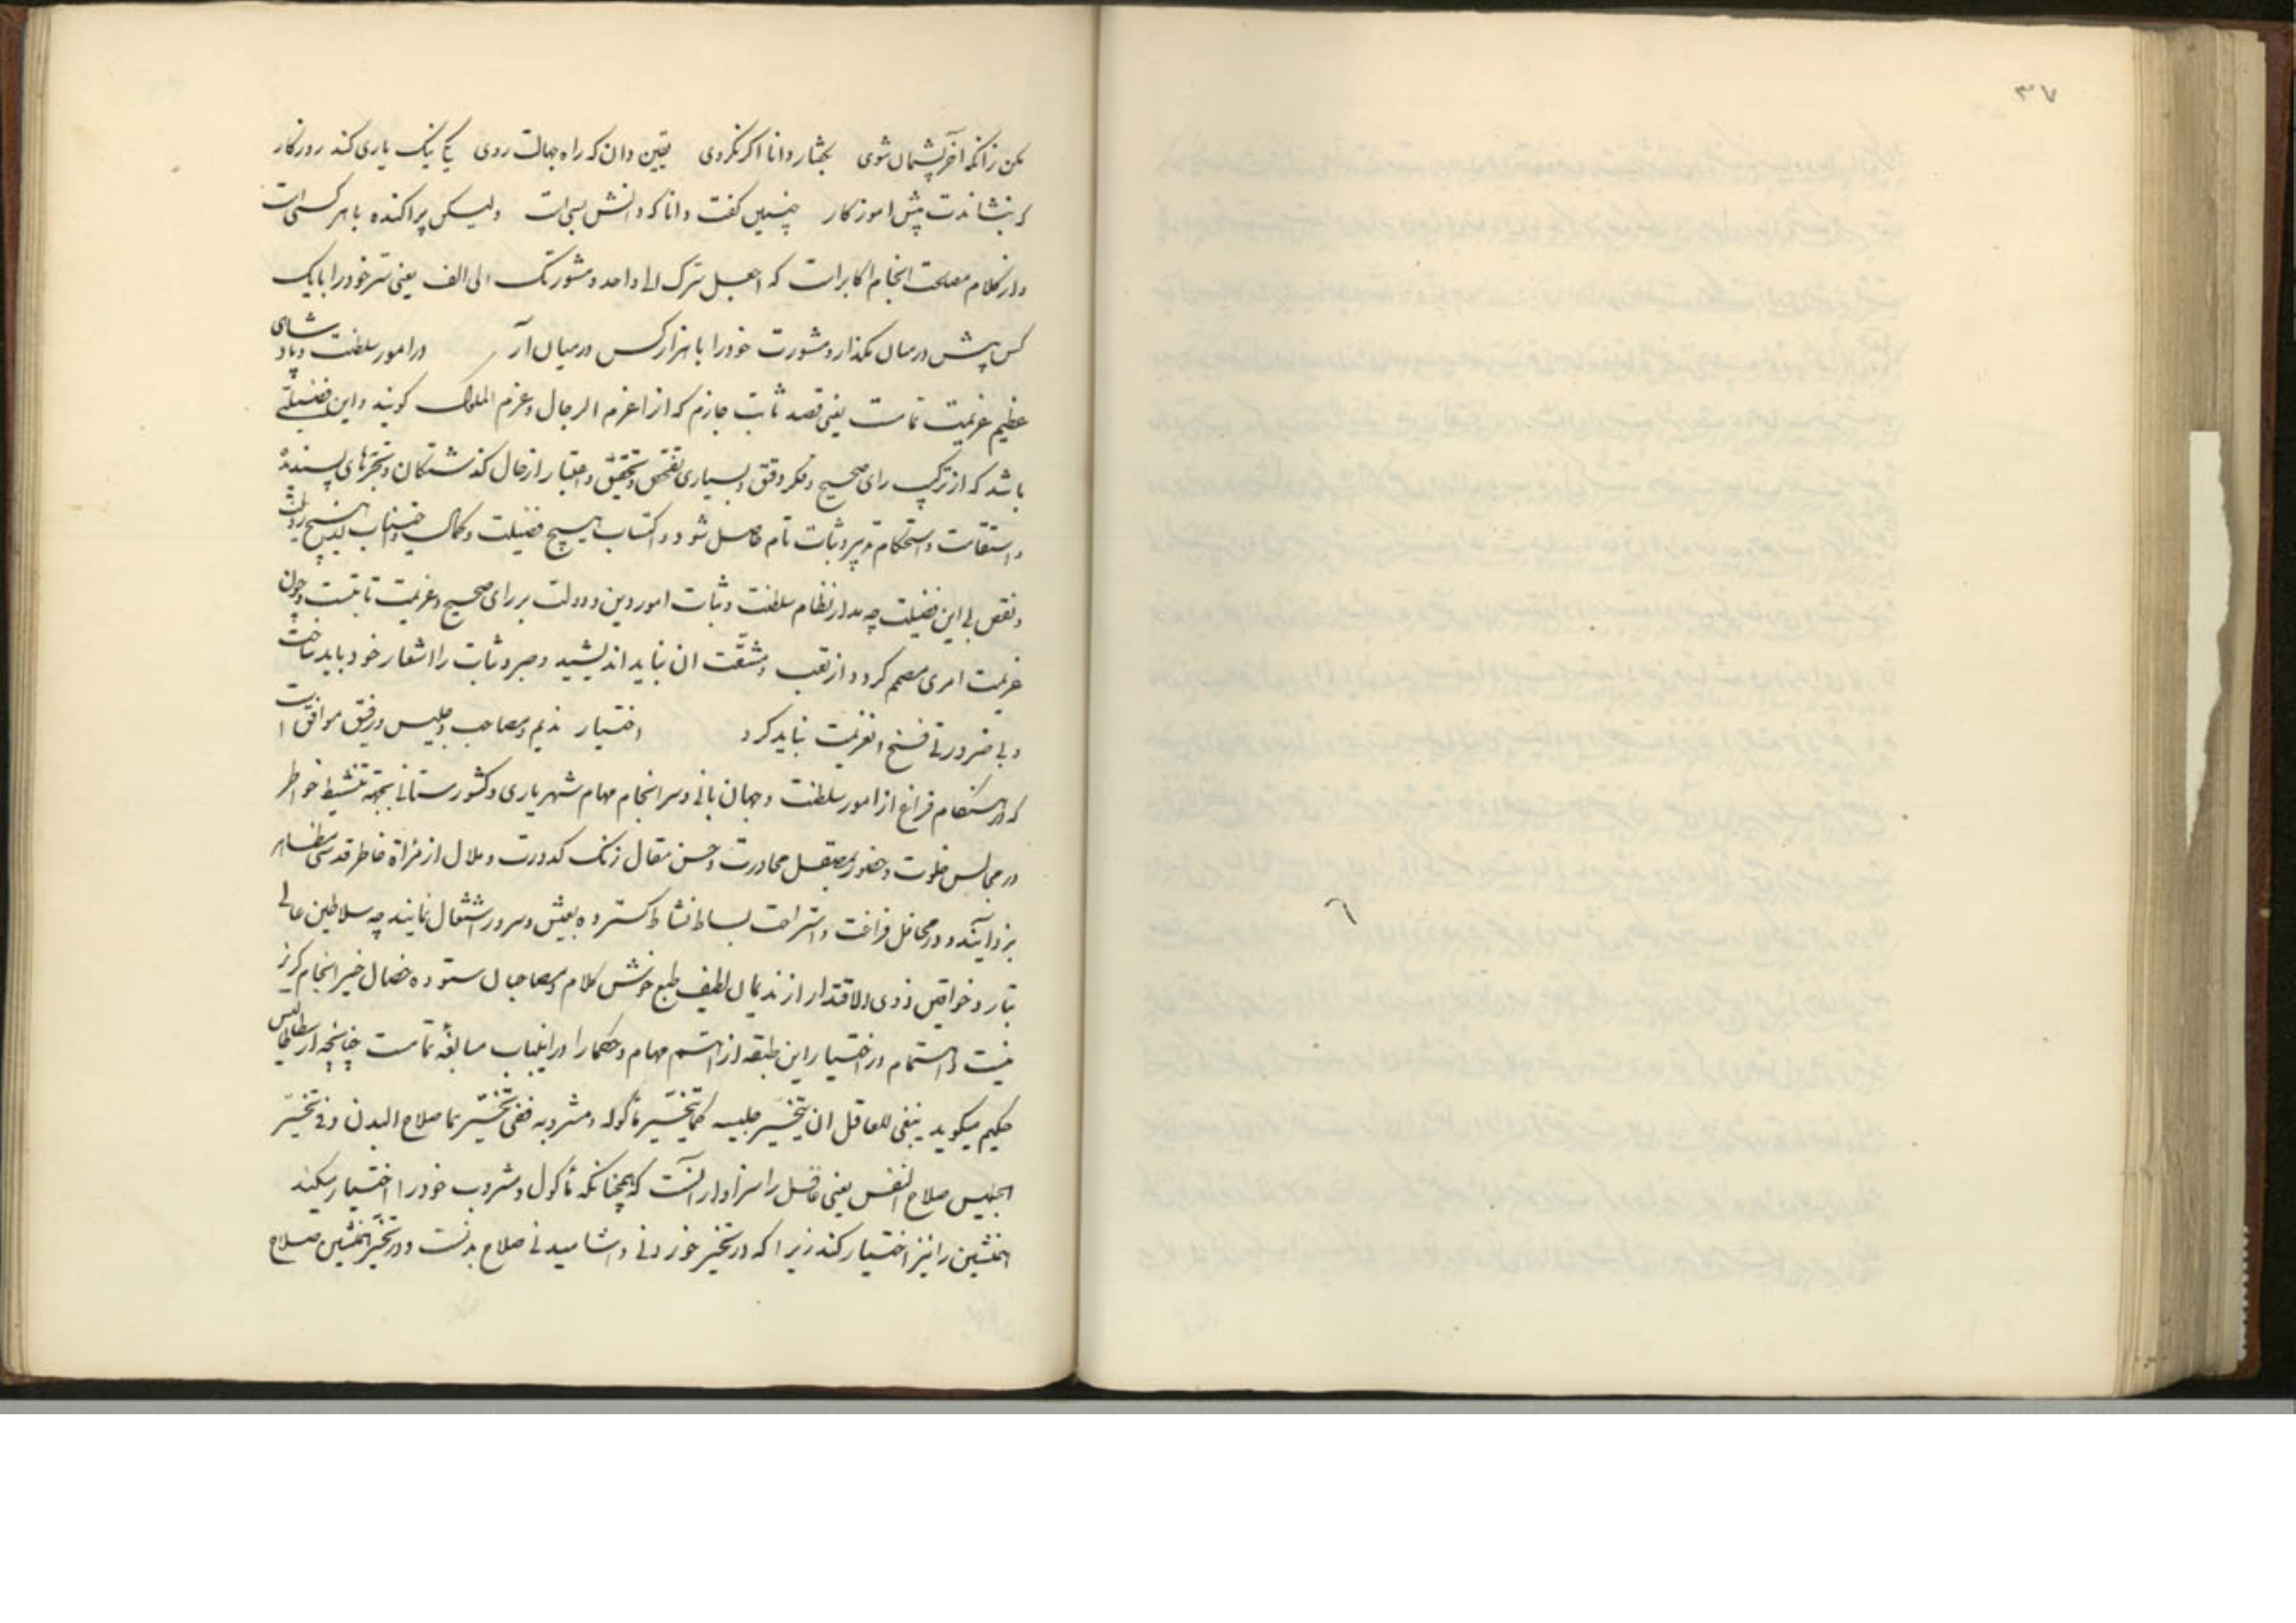 ۳۷
مکن زانکه آخر پشیمان شوی بگفتار دانا اگر نگروی یقین دان که راه جهالت روی یکی نیک یاری کند روزگار
که بنشاندت پیش اموزکار چنین گفت دانا که دانش بسی است ولیکن پراکنده با هر کسی است
و از کلام مصلحت انجام اکابر است که اجعل سرک الی واحد و مشورتک الی الف یعنی سر خود را با یک
کس بیش در میان مگذار و مشورت خود را با هزار کس در میان آر در امور سلطنت و پادشاهی
عظیم عزیمت تامست یعنی قصد ثابت جازم که از اعزم الرجال و عزم الملوک کویند و این فضیلتی
باشد که از ترکیب رای صحیح و فکر دقیق و بسیاری تفحص و تحقیق و اعتبار از حال کذشتکان و تجربهای پسندیده
و استقامت و استحکام تدبیر و ثبات تام حاصل شود و اکتساب هیچ فضیلت و کمال و اجتناب از هیچ رذیلت
و نقص بی این فضیلت چه مدار نظام سلطنت و ثبات امور دین و دولت بر رای صحیح و عزیمت ثابتست و چون
عزیمت امری مصمم کردد از تعب و مشقت ان نباید اندیشید و صبر و ثبات را شعار خود باید ساخت
و بی ضرورتی فسخ انعزیمت نباید کرد اختیار ندیم و مصاحب و جلیس و رفیق موافق است
که در هنکام فراغ از امور سلطنت و جهان بانی و سرانجام مهام شهریاری و کشورستانی بجهة تنشیط خواطر
در مجالس خلوت و حضور بصیقل محاورت و حسن مقال زنک کدورت و ملال از مرآة خاطر قدسی مظاهر
بزدایند و در محافل فراغت و استراحت بساط نشاط کسترده بعیش و سرور اشتغال نمایند چه سلاطین عالی
تبار و خواقین ذوی الاقتدار از ندیمان لطیف طبع خوش کلام و مصاحبان ستوده خصال خیر انجام کریز
نیست و اهتمام در اختیار این طبقه از اهم مهام و حکما را در اینباب مبالغه تمامست چنانچه ارسطاطالیس
حکیم میکوید ینبغی للعاقل ان یتخیر جلیسه کما یتخیر مأکوله و مشروبه ففی تخیرهما صلاح البدن و فی تخیر
الجلیس صلاح النفس یعنی عاقل را سزاوار آنست که همچنانکه مأکول و مشروب خود را اختیار میکند
همنشین را نیز اختیار کند زیرا که در تخیر خوردنی و اشامیدنی صلاح بدنست و در تخیر همنشین صلاح